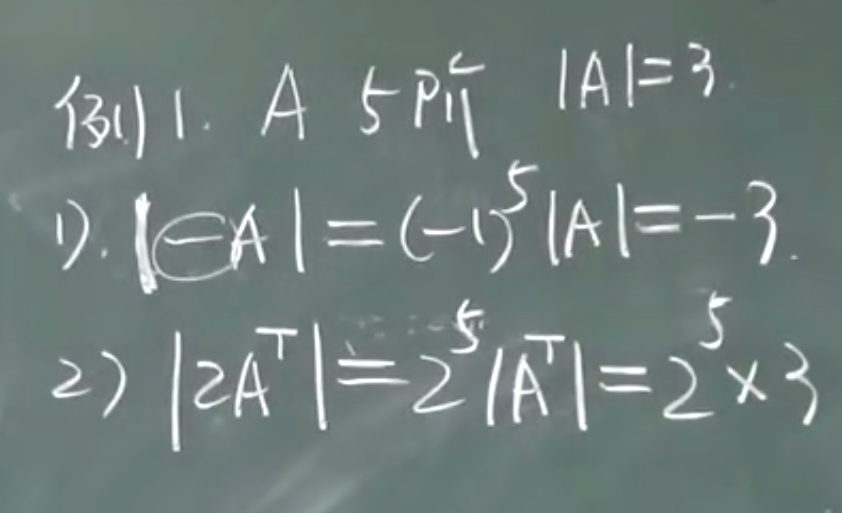 例1. A 5阶 |A|=3.
1). |-A|=(-1)⁵|A|=-3.
2) |2Aᵀ|=2⁵|Aᵀ|=2⁵×3